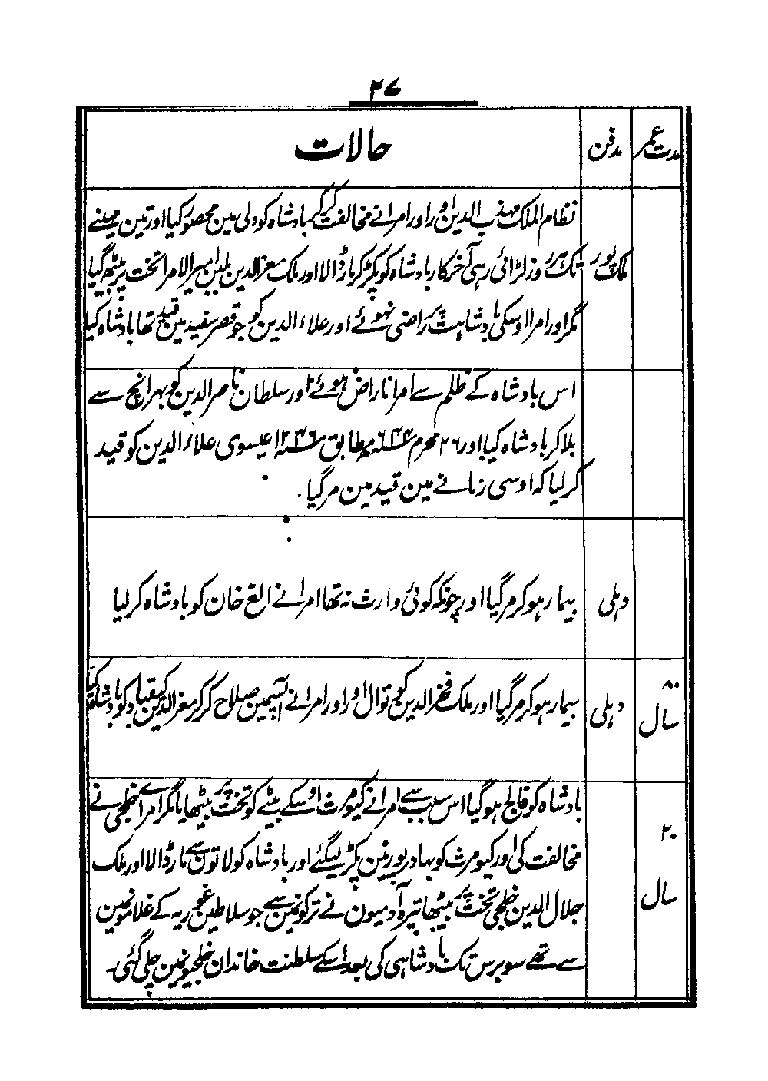 ۲۷
مدت عمر
مدفن
حالات
ملک پور
نظام الملک مہذب الدین اور اور امرانے مخالفت کرکے بادشاہ کو دلی مین محصور کیا اور تین مہینے
تک ہر روز لڑائی رہی آخرکار بادشاہ کو پکڑ کر مار ڈالا اور ملک معزالدین بلبن امیرالامرا تخت پر بیٹھ گیا
مگر اور امرا اوسکی بادشاہت پر راضی نہوئے اور علاءالدین کو جو قصر سفید مین قید تھا بادشاہ کیا
اس بادشاہ کے ظلم سے امرا ناراض ہوئے اور سلطان ناصرالدین کو بہرائچ سے
بلاکر بادشاہ کیا اور ۲۶ محرم ۶۴۴ مطابق ۱۲۴۶ عیسوی علاءالدین کو قید
کر لیا کہ اوسی زمانے مین قید مین مر گیا۔
دہلی
بیمار ہوکر مر گیا اور چونکہ کوئی وارث نہ تھا امرانے الغ خان کو بادشاہ کر لیا
۸۰
سال
دہلی
بیمار ہوکر مر گیا اور ملک فخرالدین کوتوال اور اور امرانے آپسمین صلاح کر کر معزالدین کیقباد کو بادشاہ کیا
۲۰
سال
بادشاہ کو فالج ہوگیا اس سبب سے امرانے کیومرث اوسکے بیٹے کو تخت پر بیٹھایا مگر امراے خلجی نے
مخالفت کی اور کیومرث کو بہادرپور مین پکڑ لیگئے اور بادشاہ کو لاتون سے مار ڈالا اور ملک
جلال الدین خلجی تخت پر بیٹھا تیرہ آدمیون نے ترکونمین سے جو سلاطین غوریہ کے غلامونمین
سے تھے سو برس تک بادشاہی کی بعد اسکے سلطنت خاندان خلجیونمین چلی گئی۔